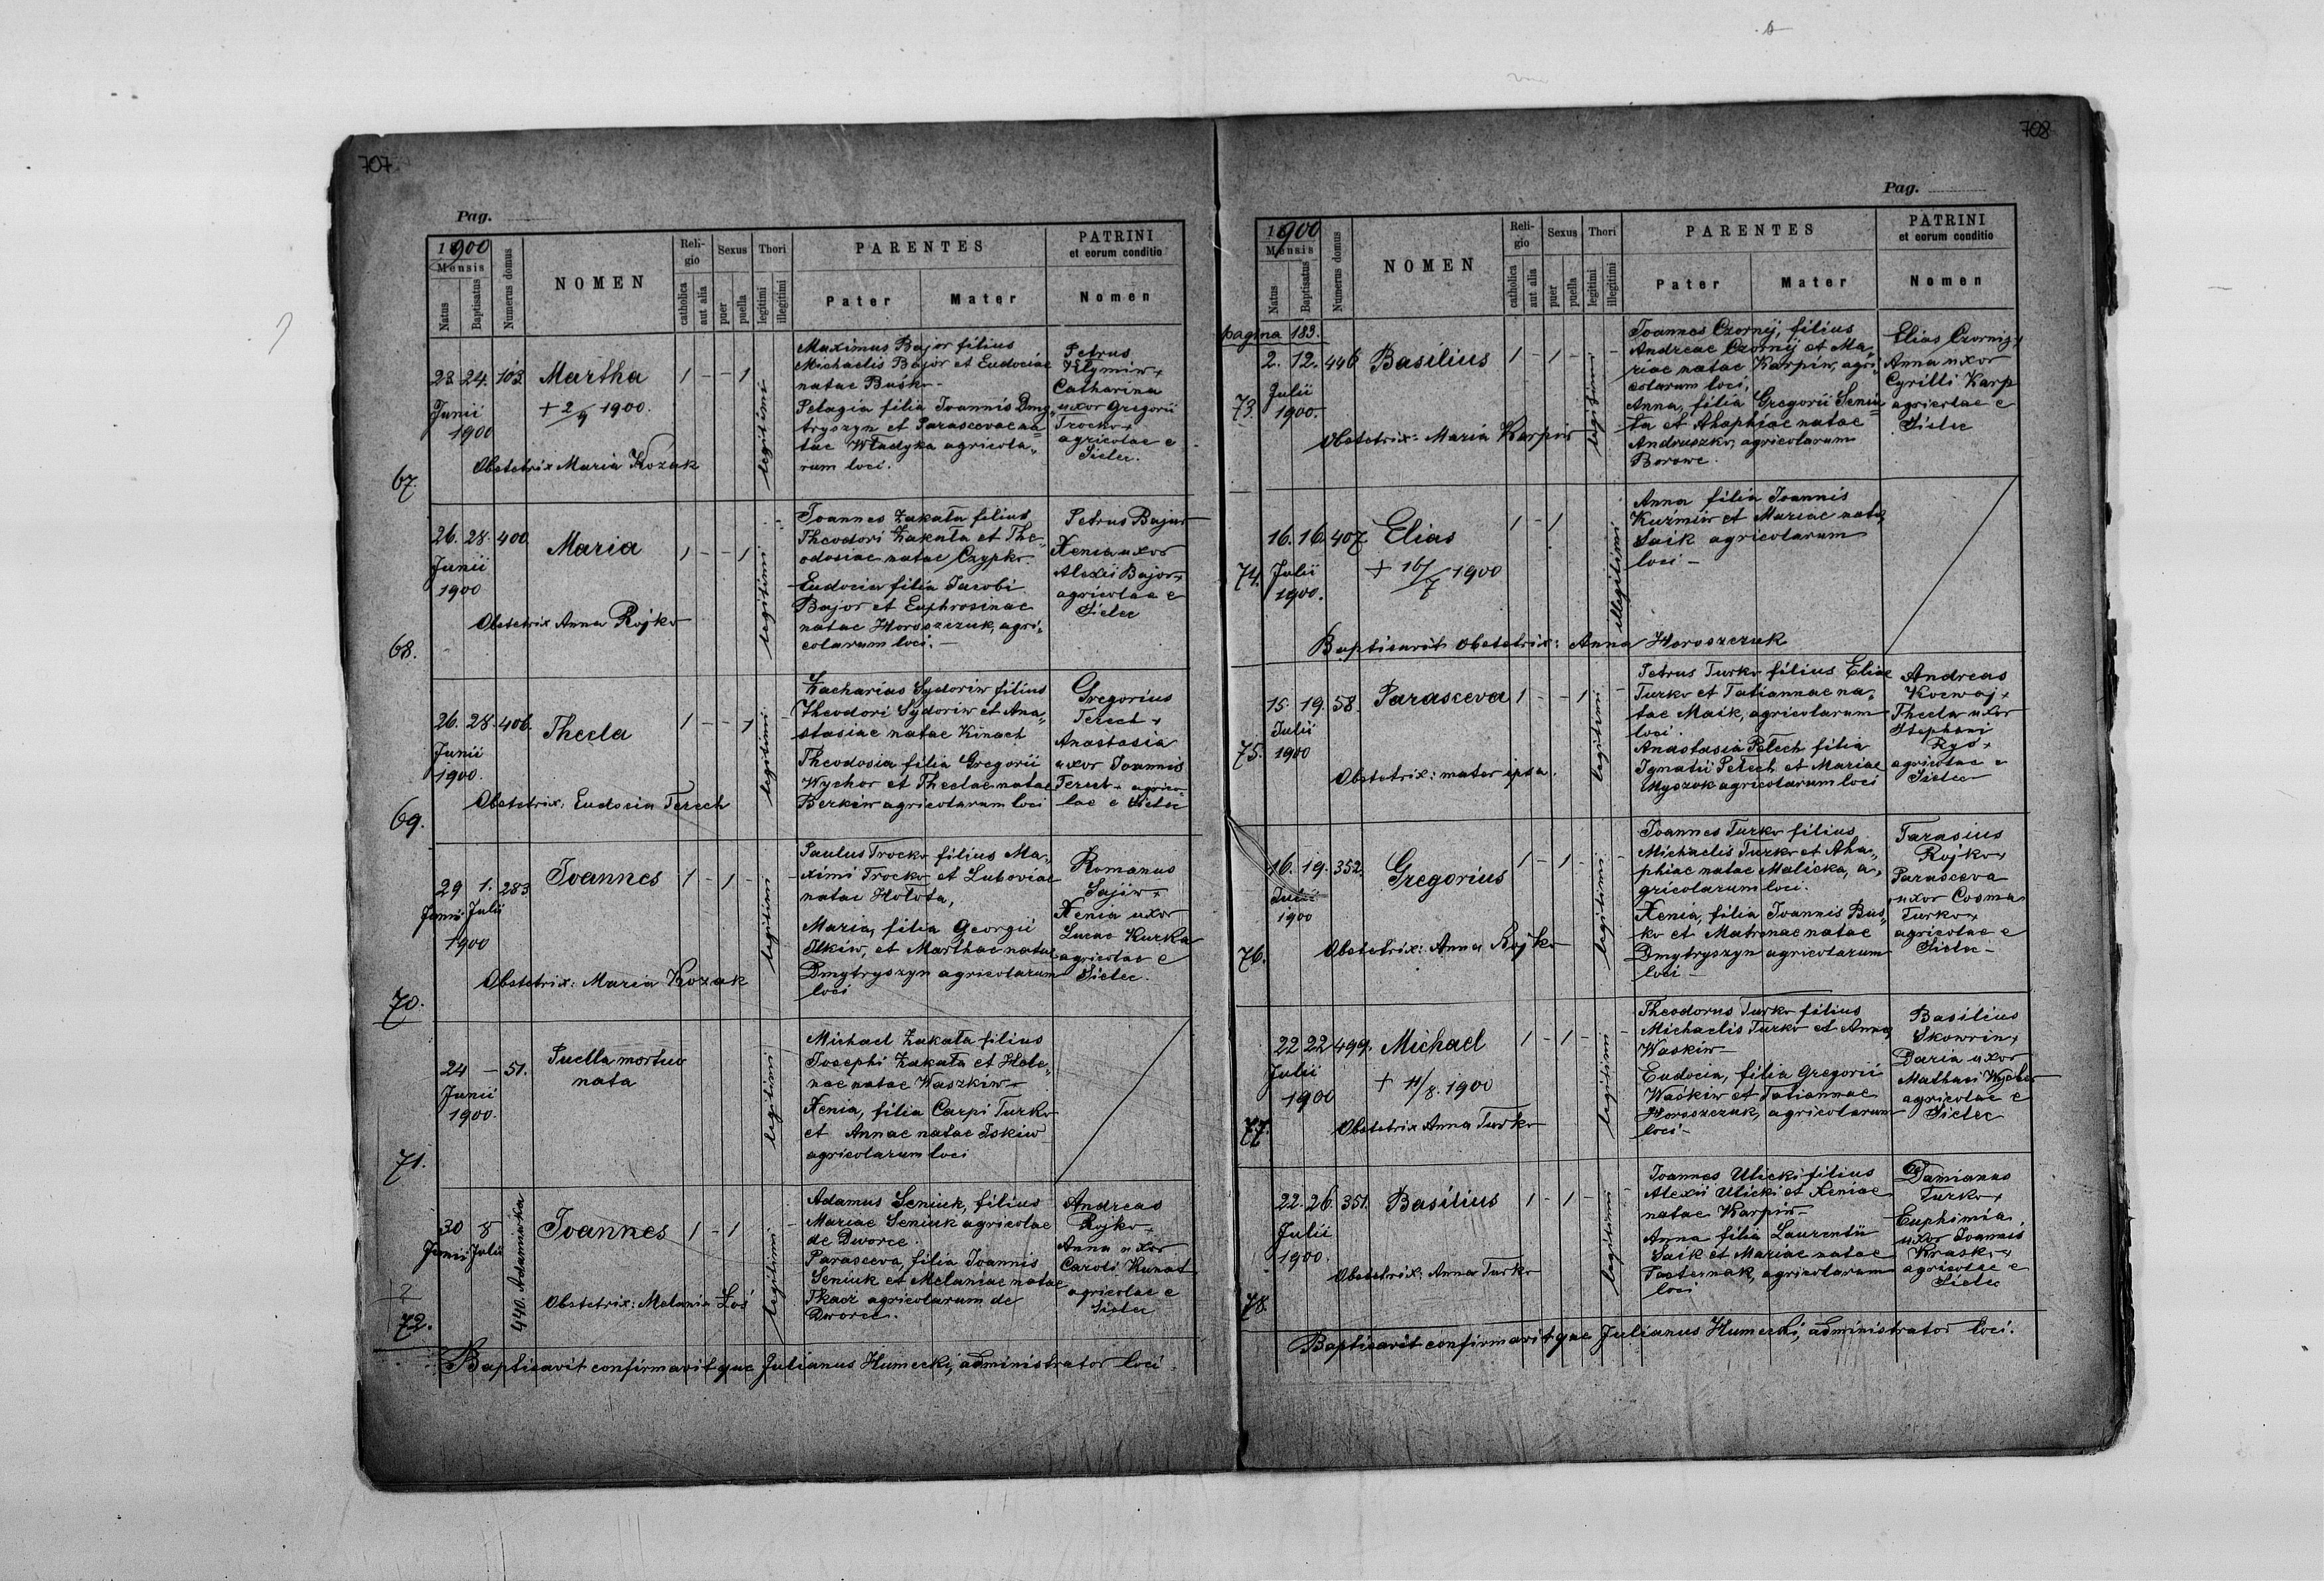 707
Pag.
1900
Mensis
Natus
Baptisatus
Numerus domus
NOMEN
Reli-
gio
catholica
aut alia
Sexus
puer
puella
Thori
legitimi
illegitimi
PARENTES
Pater
Mater
PATRINI
et eorum conditio
Nomen
67.
23 24. 103. Martha 1 - - 1
Junii
1900
+ 2/9 1900.
Obstetrix Maria Kozak
legitimi
Maximus Bajor filius
Michaelis Bajor et Eudociae
natae Buśko-
Pelagia filia Joannis Dmy„
tryszyn et Parascevae na„
tae Władyka agricola„
rum loci.
Petrus
Klymiw +
Catharina
uxor Gregorii
Trocko +
agricolae e
Sielec.
68.
26. 28. 400. Maria 1 - - 1
Junii
1900
Obstetrix Anna Rojko
legitimi
Joannes Zakała filius
Theodori Zakała et The„
odosiae natae Czypko.
Eudocia filia Jacobi
Bajor et Euphrosinae
natae Horoszczuk, agri„
colarum loci.-
Petrus Bajor
Xenia uxor
Alexii Bajor +
agricolae e
Sielec
69.
26. 28. 406. Thecla 1 - - 1
Junii
1900.
Obstetrix: Eudocia Terech
legitimi
Zacharias Sydoriw filius
Theodori Sydoriw et Ana„
stasiae natae Kinach
Theodosia filia Gregorii
Wychor et Theclae natae
Berkiw agricolarum loci
Gregorius
Terech +
Anastasia
uxor Joannis
Terech + agrico„
lae e Sielec
70.
29 1. 283 Joannes 1 - 1 -
Junii Julii
1900
Obstetrix: Maria Kozak
legitimi
Paulus Trocko filius Ma„
ximi Trocko et Luboviae
natae Hołota,
Maria, filia Georgii
Ilkiw, et Marthae natae
Dmytryszyn agricolarum
loci
Romanus
Sajiw +
Xenia uxor
Lucae Kurka
agricolae e
Sielec.
71.
24 - 51. Puella mortua
nata
Junii
1900.
legitimi
Michael Zakała filius
Josephi Zakała et Hele„
nae natae Waszkiw -
Xenia, filia Carpi Turko
et Annae natae Iskiw
agricolarum loci
72.
30 8 Joannes 1 - 1
Junii Julii
440. Adamiwka
Obstetrix: Melania Łoś
legitimi
Adamus Seniuk, filius
Mariae Seniuk agricolae
de Dworce.
Parasceva, filia Joannis
Seniuk et Melaniae natae
Tkacz agricolarum de
Dworce.
Andreas
Rojko.
Anna uxor
Caroli Kunat
agricolae e
Sielec
Baptisavit confirmavitque Julianus Humecki, administrator loci.
708
Pag.
1900
Mensis
Natus
Baptisatus
Numerus domus
NOMEN
Reli-
gio
catholica
aut alia
Sexus
puer
puella
Thori
legitimi
illegitimi
PARENTES
Pater
Mater
PATRINI
et eorum conditio
Nomen
pagina 183.
73.
2. 12. 446 Basilius 1 - 1 -
Julii
1900.-
Obstetrix: Maria Karpiw
legitimi
Joannes Czornij, filius
Andreae Czornij et Ma„
riae natae Karpiw, agri„
colarum loci,
Anna, filia Gregorii Seniu„
ta et Ahaphiae natae
Andruszko, agricolarum
Borowe.
Elias Czornij +
Anna uxor
Cyrilli Karp
agricolae e
Sielec
74.
16. 16. 407 Elias 1 - 1
Julii
1900.
+ 16/7 1900
illegitimi
Anna filia Joannis
Kuźmiw et Mariae natae
Saik agricolarum
loci -
Baptisavit obstetrix: Anna Horoszczuk
75.
15. 19. 58. Parasceva 1 - - 1
Julii
1900
Obstetrix: mater ipsa.
legitimi
Petrus Turko filius Eliae
Turko et Tatiannae na„
tae Maik, agricolarum
loci.
Anastasia Pełech filia
Ignatii Pełech et Mariae
Myszok agricolarum loci
Andreas
Thecla uxor
Stephani
agricolae e
Sielec
76.
16. 19. 352. Gregorius 1 - 1 -
Julii
1900
Obstetrix: Anna Rojko
legitimi
Joannes Turko filius
Michaelis Turko et Aha„
phiae natae Malicka, a„
gricolarum loci.
Xenia, filia Joannis Bus„
ko et Matronae natae
Dmytryszyn agricolarum
loci -
Tarasius
Rojko +
Parasceva
uxor Cosmae
Turko +
agricolae e
Sielec -
77.
22 22 499. Michael 1 - 1 -
Julii
1900
+ 11/8. 1900
Obstetrix Anna Turko
legitimi
Theodorus Turko filius
Michaelis Turko et Annae
Waskiw -
Eudocia, filia Gregorii
Waśkiw et Tatiannae
Horoszczuk, agricolarum
loci -
Basilius
Skowrin +
Daria uxor
Mathaei Wychor
agricolae e
Sielec
78.
22. 26. 351. Basilius 1 - 1 -
Julii
1900.
Obstetrix: Anna Turko
legitimi
Joannes Ulicki filius
Alexii Ulicki et Xeniae
natae Karpiw -
Anna filia Laurentii
Saik et Mariae natae
Pasternak, agricolarum
loci
Damianus
Turko +
Euphimia,
uxor Joannis
Krasko +
agricolae e
Sielec
Baptisavit confirmavitque Julianus Humecki, administrator loci.